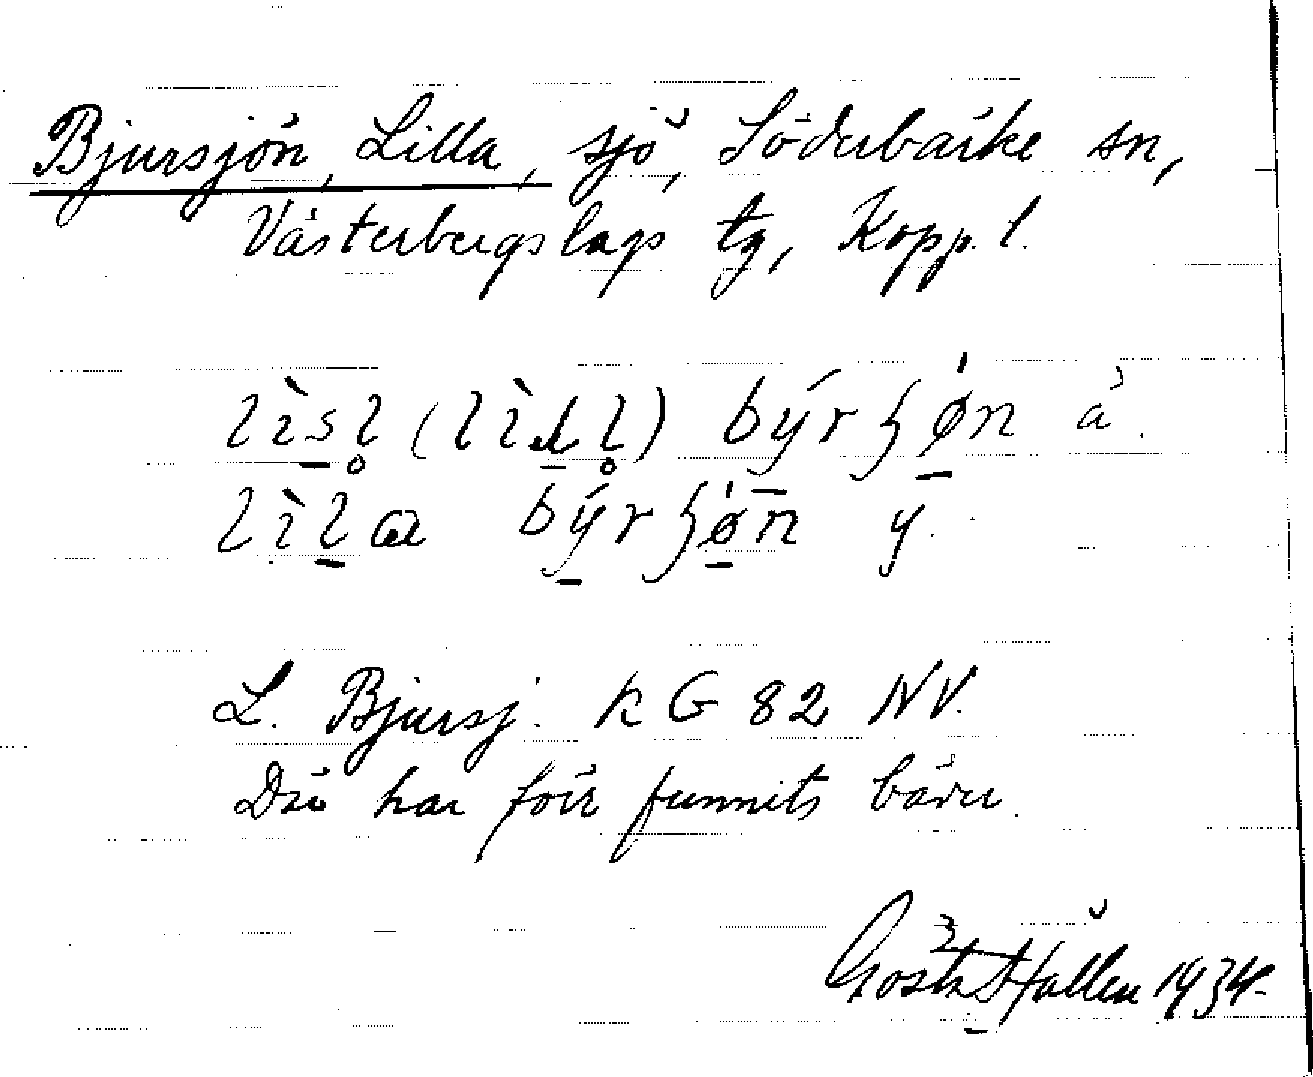 Bjursjön, Lilla, sjö, Söderbärke sn,
Västerbergslags tg, Kopp. l.
lìsl̥ (lìdl̥) by̌rʃø̀n ä.
lìla by̌rʃøn y.
L. Bjursj. kG 82 NV.
Där har förr funnits bäver.
Gösta Hallen 1934